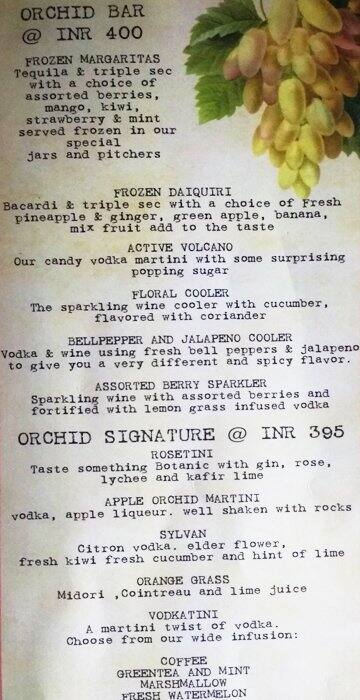 ORCHID BAR
@ INR 400
FROZEN MARGARITAS
Tequila & triple sec
with a choice of
assorted berries,
mango, kiwi,
strawberry & mint
served frozen in our
special
jars and pitchers
FROZEN DAIQUIRI
Bacardi & triple sec with a choice of Fresh
pineapple & ginger, green apple, banana,
mix fruit add to the taste
ACTIVE VOLCANO
Our candy vodka martini with some surprising
popping sugar
FLORAL COOLER
The sparkling wine cooler with cucumber,
flavored with coriander
BELLPEPPER AND JALAPENO COOLER
Vodka & wine using fresh bell peppers & jalapeno
to give you a very different and spicy flavor.
ASSORTED BERRY SPARKLER
Sparkling wine with assorted berries and
fortified with lemon grass infused vodka
ORCHID SIGNATURE @ INR 395
ROSETINI
Taste something Botanic with gin, rose,
lychee and kafir lime
APPLE ORCHID MARTINI
vodka, apple liqueur. well shaken with rocks
SYLVAN
Citron vodka. elder flower,
fresh kiwi fresh cucumber and hint of lime
ORANGE GRASS
Midori ,Cointreau and lime juice
VODKATINI
A martini twist of vodka.
Choose from our wide infusion:
COFFEE
GREENTEA AND MINT
MARSHMALLOW
FRESH WATERMELON